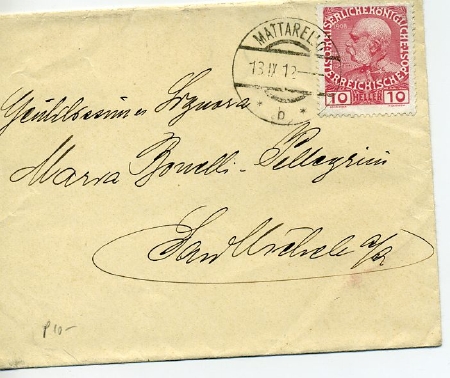 MATTARELLO
13 IX 12
* b *
KAISERLICHE KÖNIGLICHE
ÖSTERREICHISCHE
10 HELLER 10
Gentilissima Signora
Maria Bonelli-Pellegrini
San Michele a/A
p 10-